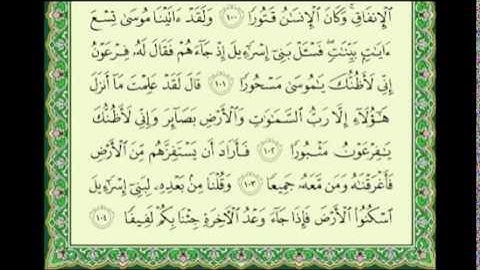 ٱلْإِنفَاقِ ۚ وَكَانَ ٱلْإِنسَٰنُ قَتُورًا ١٠٠ وَلَقَدْ ءَاتَيْنَا مُوسَىٰ تِسْعَ
ءَايَٰتٍۭ بَيِّنَٰتٍ ۖ فَسْـَٔلْ بَنِىٓ إِسْرَٰٓءِيلَ إِذْ جَآءَهُمْ فَقَالَ لَهُۥ فِرْعَوْنُ
إِنِّى لَأَظُنُّكَ يَٰمُوسَىٰ مَسْحُورًا ١٠١ قَالَ لَقَدْ عَلِمْتَ مَآ أَنزَلَ
هَٰٓؤُلَآءِ إِلَّا رَبُّ ٱلسَّمَٰوَٰتِ وَٱلْأَرْضِ بَصَآئِرَ وَإِنِّى لَأَظُنُّكَ
يَٰفِرْعَوْنُ مَثْبُورًا ١٠٢ فَأَرَادَ أَن يَسْتَفِزَّهُم مِّنَ ٱلْأَرْضِ
فَأَغْرَقْنَٰهُ وَمَن مَّعَهُۥ جَمِيعًا ١٠٣ وَقُلْنَا مِنۢ بَعْدِهِۦ لِبَنِىٓ إِسْرَٰٓءِيلَ
ٱسْكُنُوا۟ ٱلْأَرْضَ فَإِذَا جَآءَ وَعْدُ ٱلْءَاخِرَةِ جِئْنَا بِكُمْ لَفِيفًا ١٠٤